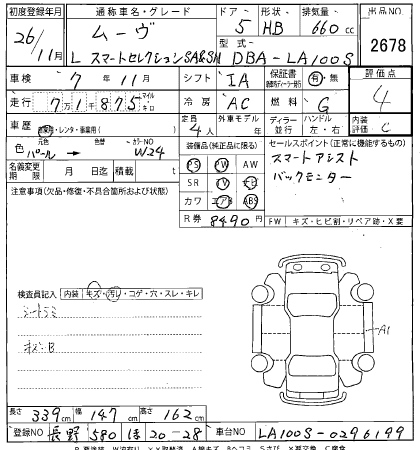 初度登録年月 通称車名・グレード ドア 形状 排気量 出品NO
26/11月 ムーヴ 5 HB 660cc 2678
L スマートセレクションSA&SN 型式 DBA-LA100S
車検 7年 11月 シフト IA 保証書 有・無 評価点
走行 7万1千875 マイル キロ 冷房 AC 燃料 G 4
車歴 自家用・レンタ・事業用( ) 定員 4人 外車モデル 年 ディーラー 並行 ハンドル 左・右 内装評価 C
色 元色 パール→ カラーNO W24 装備品(純正品に限る) セールスポイント(正常に機能するもの)
名義変更期限 月 日迄 積載 t PS PW AW スマートアシスト
注意事項(欠品・修復・不具合箇所および状態) SR TV ナビ バックモニター
カワ エアB ABS
R券 8490円 FW キズ・ヒビ割・リペア跡・X要
検査員記入 内装 キズ・汚レ・コゲ・穴・スレ・キレ
シートシミ
A1
長さ 339cm 幅 147cm 高さ 162cm
登録NO 長野 580 ほ 20-28 車台NO LA100S-0296199